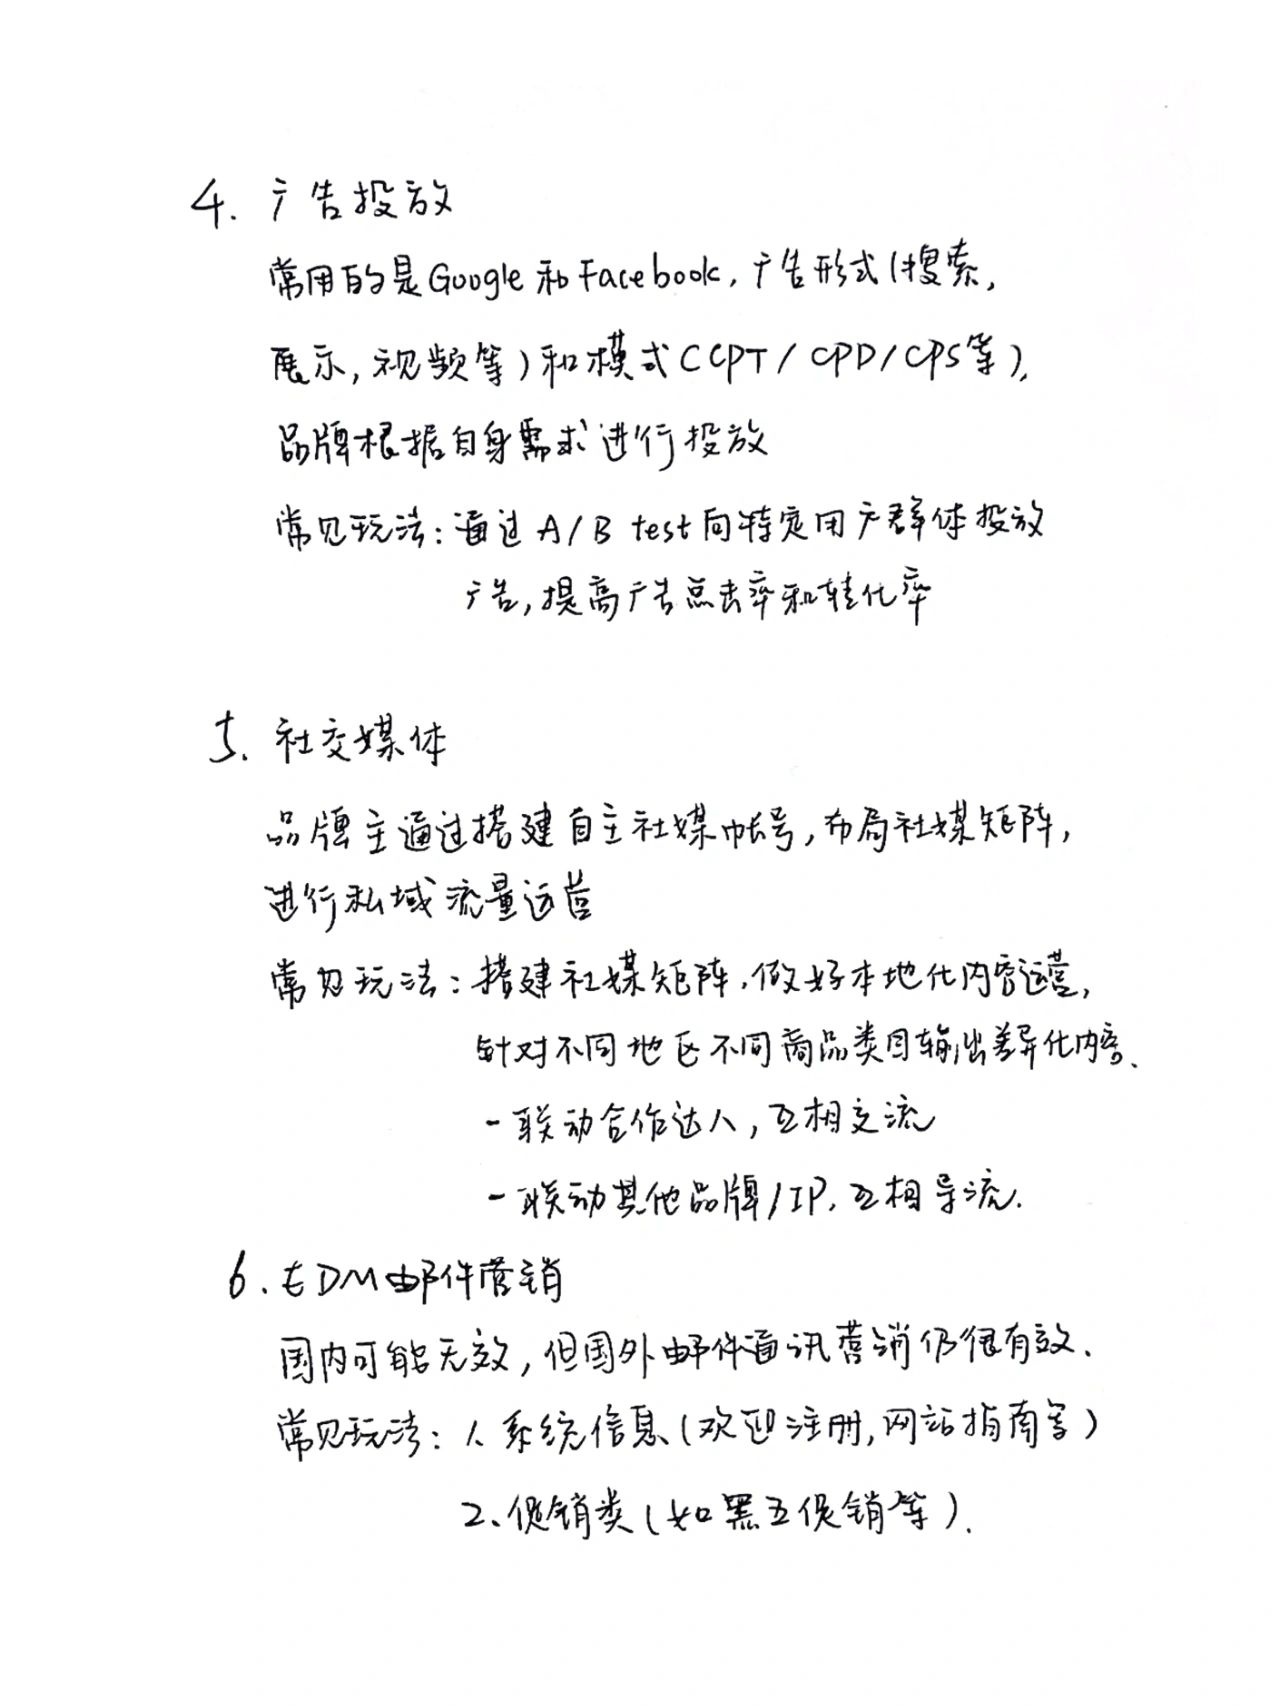 4. 广告投放
常用的是Google和Facebook,广告形式(搜索,
展示,视频等)和模式(CPT/CPD/CPS等),
品牌根据自身需求进行投放
常见玩法:通过A/B test向特定用户群体投放
广告,提高广告点击率和转化率
5. 社交媒体
品牌主通过搭建自主社媒帐号,布局社媒矩阵,
进行私域流量运营
常见玩法:搭建社媒矩阵,做好本地化内容运营,
针对不同地区不同商品类目输出差异化内容、
-联动合作达人,互相交流
-联动其他品牌/IP,互相导流.
6. EDM邮件营销
国内可能无效,但国外邮件通讯营销仍很有效、
常见玩法:1、系统信息(欢迎注册,网站指南等)
2、促销类(如黑五促销等).